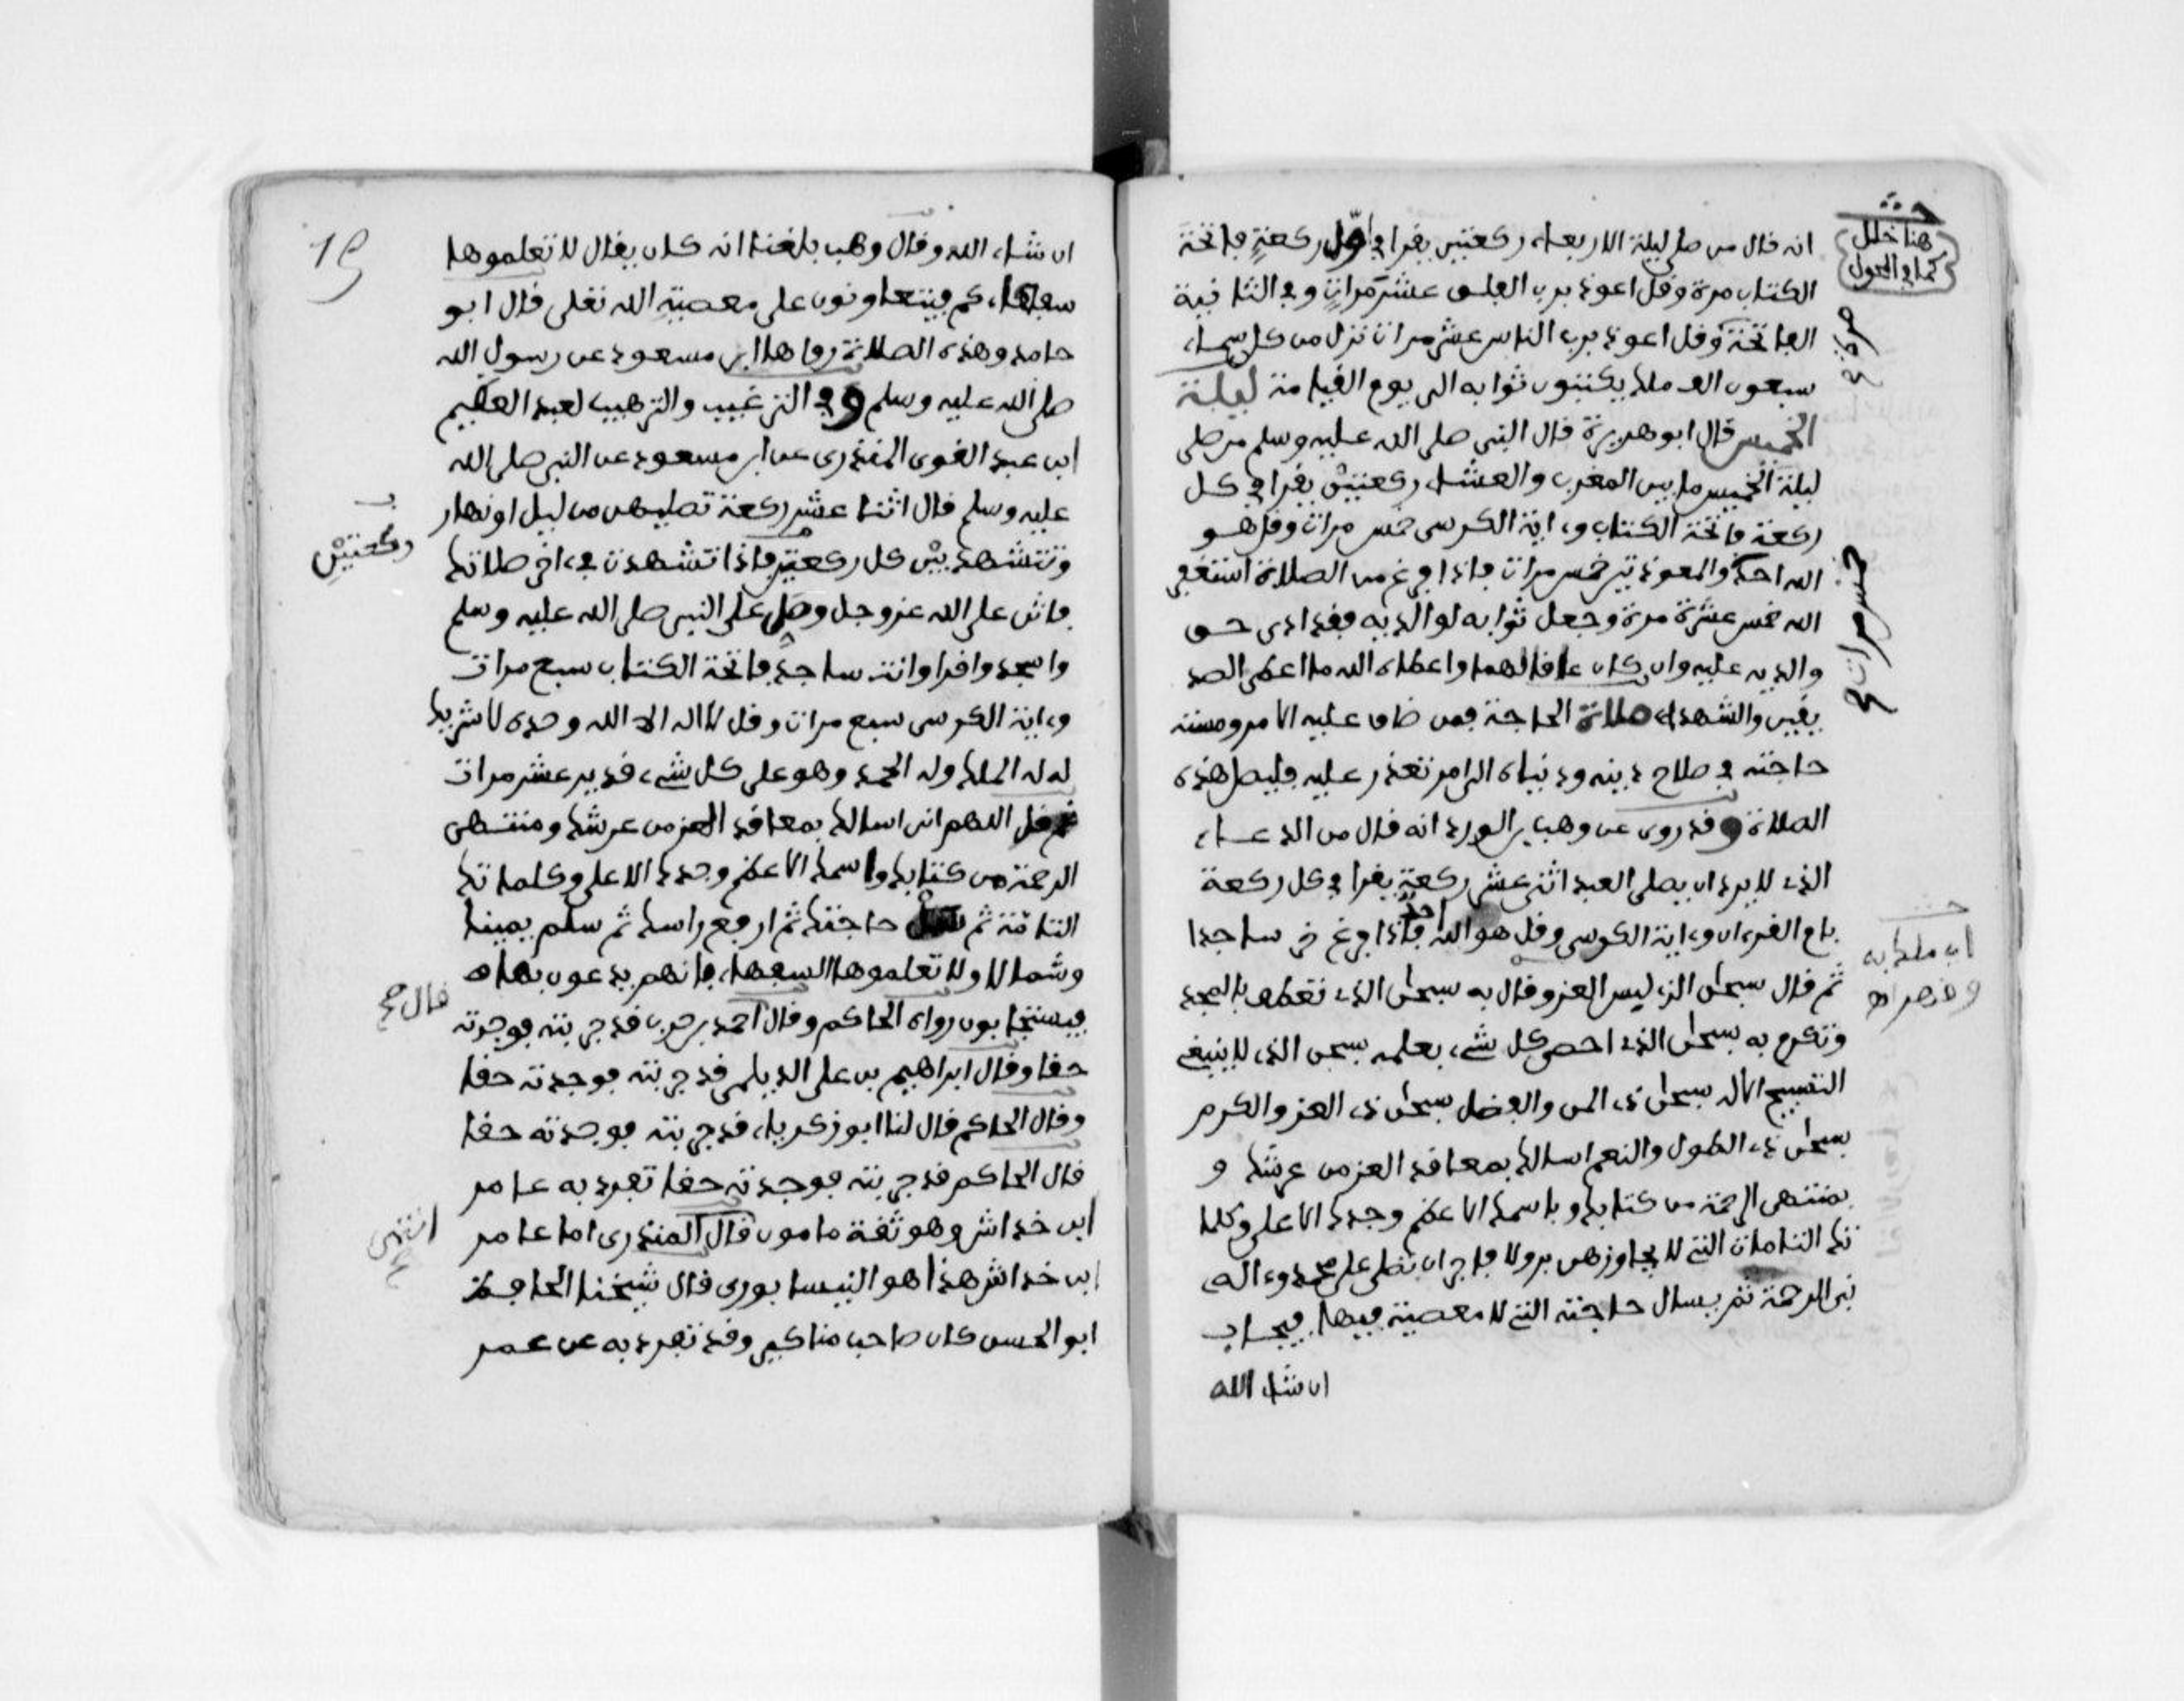 انه قال من صلى ليلة الاربعاء ركعتين يقرا في اول ركعة فاتحة
الكتاب مرة وقل اعوذ برب الفلق عشر مرات وفي الثانية
الفاتحة وقل اعوذ برب الناس عشر مرات نزل من كل سماء
سبعون الف ملك يكتبون ثوابه الى يوم القيامة ليلة
الخميس قال ابو هريرة قال النبي صلى الله عليه وسلم من صلى
ليلة الخميس ما بين المغرب والعشاء ركعتين يقرا في كل
ركعة فاتحة الكتاب وءاية الكرسي خمس مرات وقل هو
الله احد والمعوذتين خمس مرات فاذا فرغ من الصلاة استغفر
الله خمس عشرة مرة وجعل ثوابه لوالديه فقد ادى حق
والديه عليه وان كان عاقا لهما واعطاه الله ما اعطى الصد
يقين والشهداء صلاة الحاجة فمن ضاق عليه الامر ومسته
حاجته في صلاح دينه ودنياه الى امر تعذر عليه فليصل هذه
الصلاة وقد روى عن وهيب بن الورد انه قال من الدعاء
الذي لا يرد ان يصلى العبد اثنى عشر ركعة يقرا في كل ركعة
بام القرءان وءاية الكرسي وقل هو الله احد فاذا فرغ خر ساجدا
ثم قال سبحن الذي لبس العز وقال به سبحن الذي تعطف بالمجد
وتكرم به سبحن الذي احصى كل شيء بعلمه سبحن الذي لا ينبغي
التسبيح الا له سبحن ذي المن والفضل سبحن ذي العز والكرم
سبحن ذي الطول والنعم اسالك بمعاقد العز من عرشك و
بمنتهى الرحمة من كتابك وباسمك الاعظم وجدك الاعلى وكلما
تك التامات التي لا يجاوزهن بر ولا فاجر ان تصلى على محمد وءاله
نبي الرحمة ثم يسال حاجته التي لا معصية فيها فيجاب
ان شاء الله
هنا خلل
كما في المحول
خمس مرات صح
ان شاء الله وقال وهب بلغنا انه كان يقال لا تعلموها
سفهاءكم فيتعاونون على معصية الله تعلى قال ابو
حامد وهذه الصلاة رواها ابن مسعود عن رسول الله
صلى الله عليه وسلم وفي الترغيب والترهيب لعبد العظيم
ابن عبد القوى المنذري عن ابن مسعود عن النبي صلى الله
عليه وسلم قال اثنا عشر ركعة تصليهن من ليل او نهار
وتتشهد بين كل ركعتين فاذا تشهدت في ءاخر صلاتك
فاثن على الله عز وجل وصل على النبي صلى الله عليه وسلم
واسجد واقرا وانت ساجد فاتحة الكتاب سبع مرات
وءاية الكرسي سبع مرات وقل لا اله الا الله وحده لا شريك
له له الملك وله الحمد وهو على كل شيء قدير عشر مرات
ثم قل اللهم اني اسالك بمعاقد العز من عرشك ومنتهى
الرحمة من كتابك واسمك الاعظم وجدك الاعلى وكلماتك
التامة ثم سل حاجتك ثم ارفع راسك ثم سلم يمينا
وشمالا ولا تعلموها السفهاء فانهم يدعون بها
فيستجابون رواه الحاكم وقال احمد بن حرب قد جربته فوجدته
حقا وقال ابراهيم بن على الديلمى قد جربته فوجدته حقا
وقال الحاكم قال لنا ابو زكرياء قد جربته فوجدته حقا
قال الحاكم قد جربته فوجدته حقا تفرد به عامر
ابن خداش وهو ثقة مامون قال المنذري اما عامر
ابن خداش هذا هو النيسابوري قال شيخنا الحافظ
ابو الحسن كان صاحب مناكير وقد تفرد به عن عمر
ركعتين
قال صح
انتهى